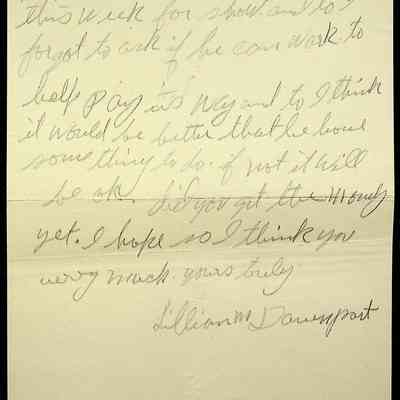 this week for show. and to I
forgot to ask if he can work to
help pay its way and to I think
it would be better that he have
some thing to do. if not it will
be ok. did you get the money
yet. I hope so I think you
verry much. yours truly
Lillian M Davenport